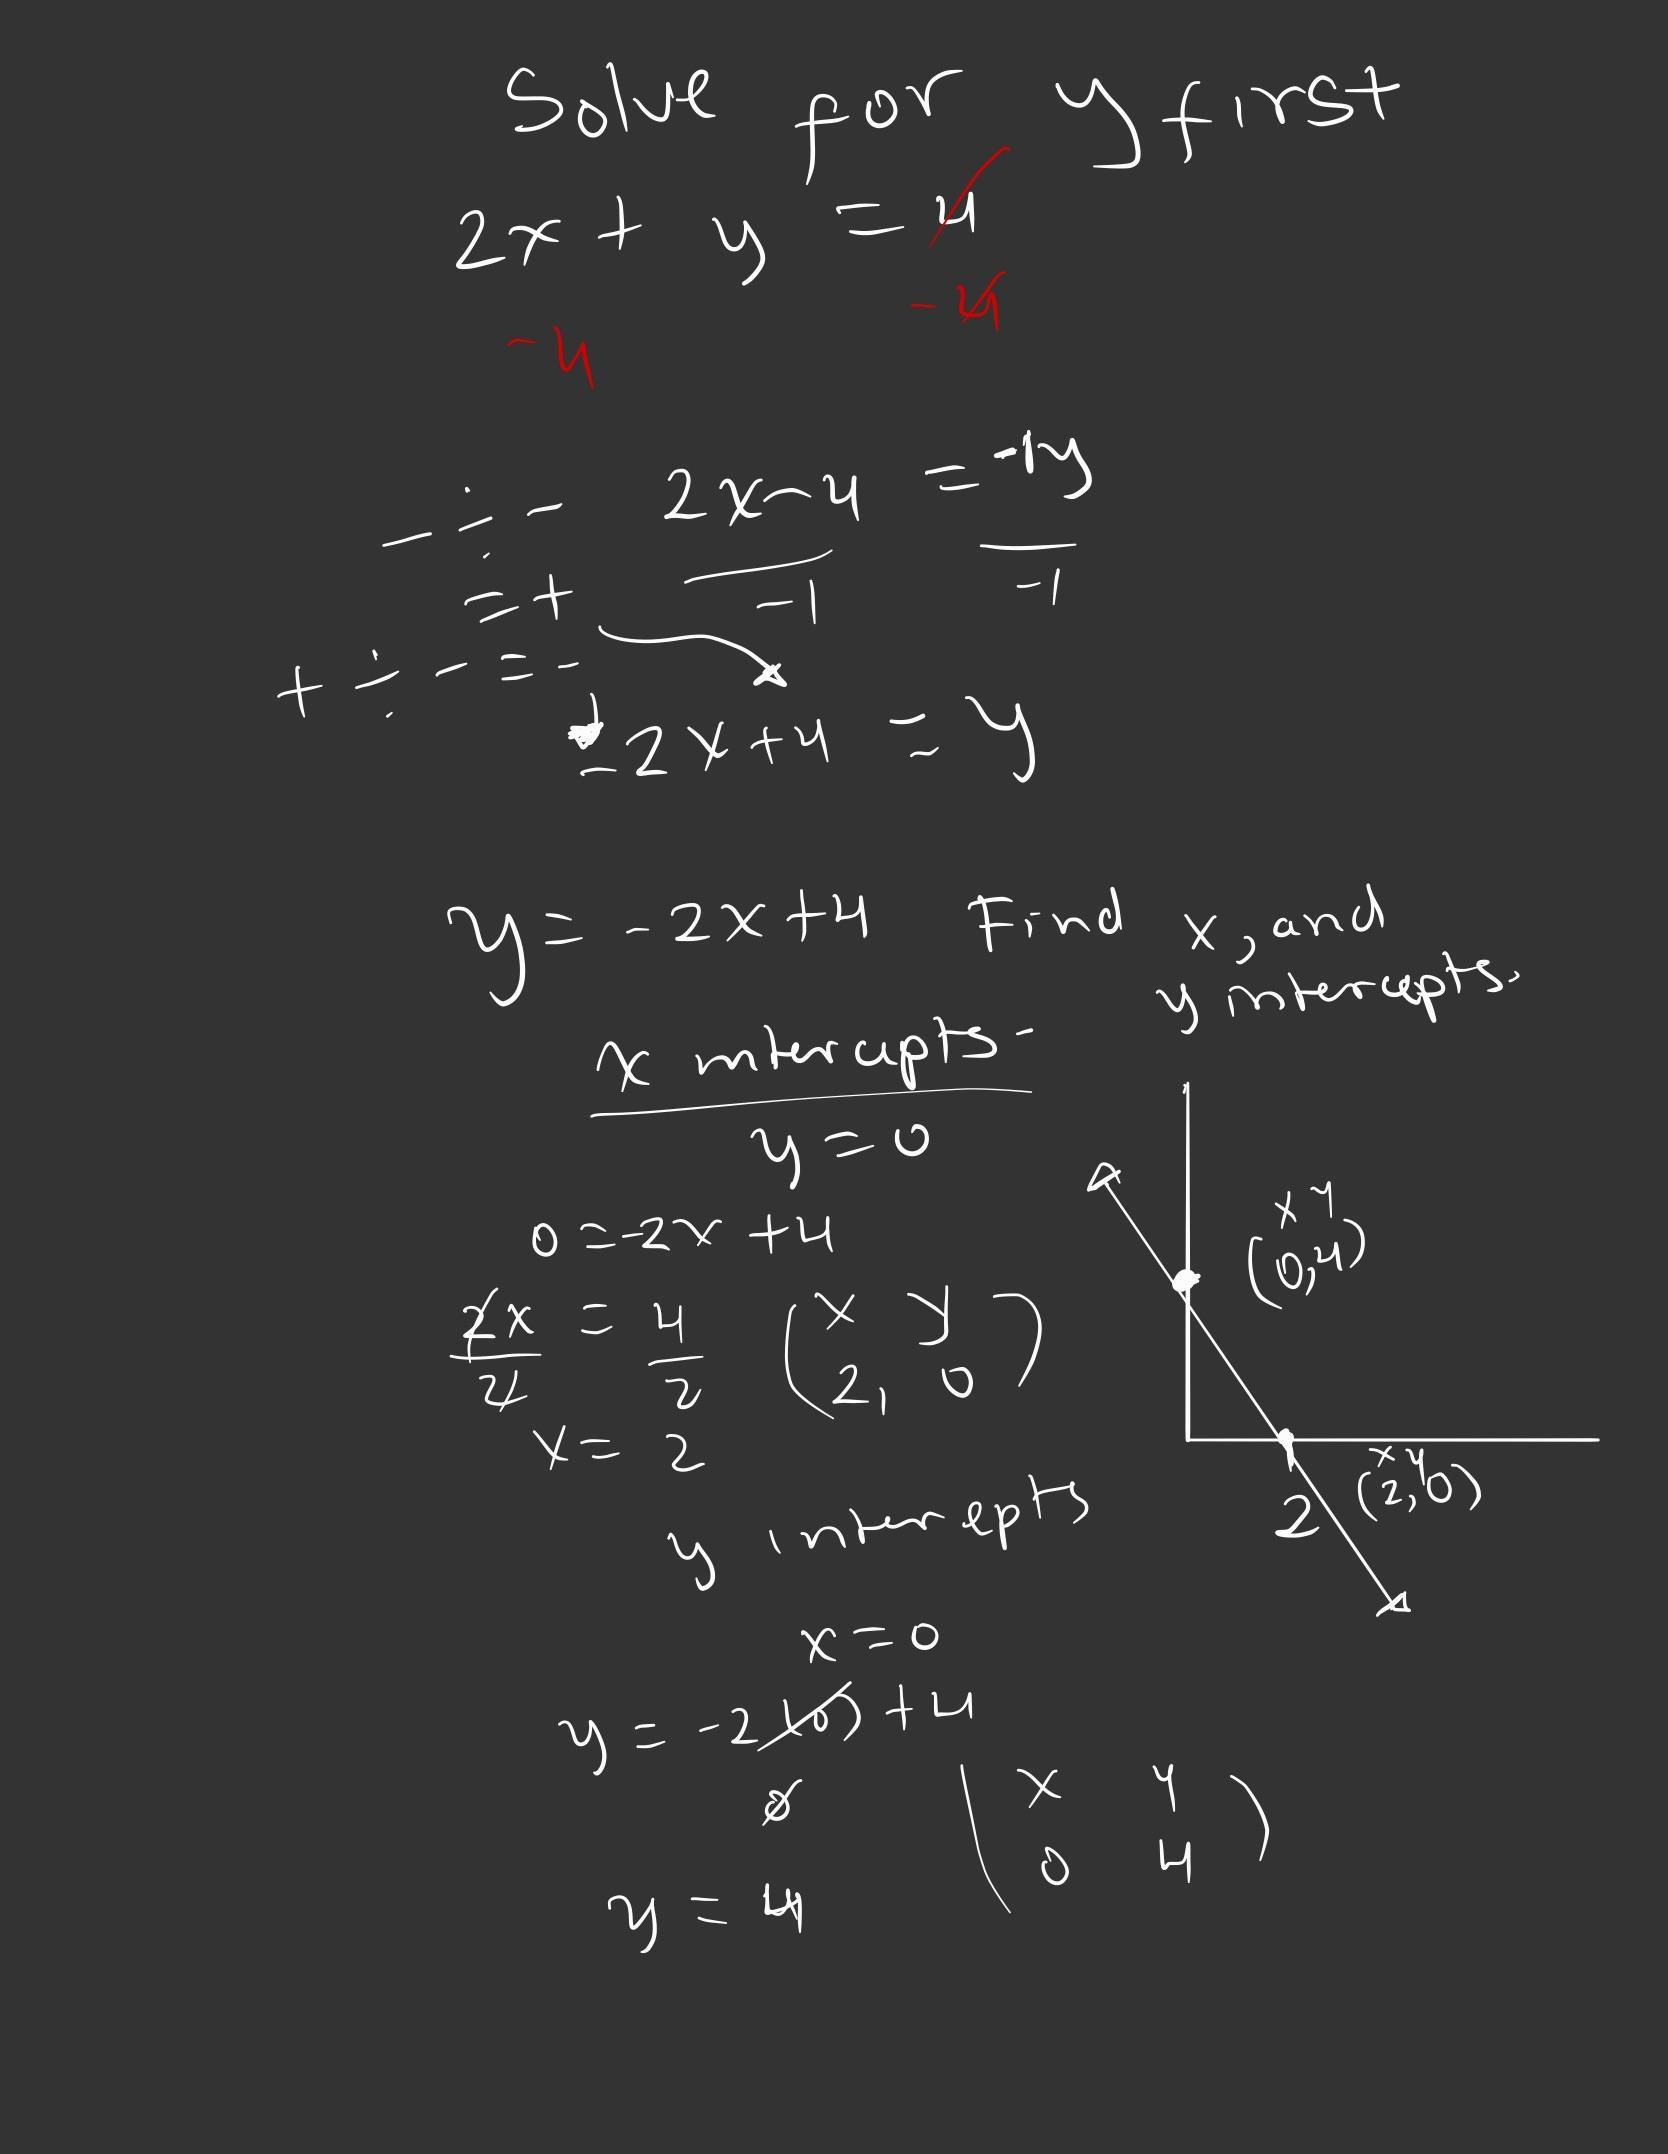 Solve for y first
2x + y = 4
- 4
- 4
2x - 4 = -1y
- ÷ -
-1 -1
= +
+ ÷ - = -
-2x+4 = y
y = -2x+4 Find x, and
y intercepts.
x intercepts-
y = 0
0 = -2x +4
2x = 4
2 2
( x y )
2, 0
x = 2
x y
(0,4)
x y
(2,0)
2
y intercepts
x = 0
y = -2(0) +4
0
y = 4
( x y )
0 4